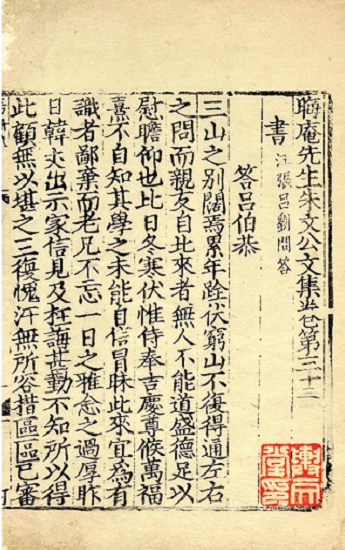 晦庵先生朱文公文集卷第三十三
書 汪張呂劉問答
答呂伯恭
三山之別闊焉累年跧伏窮山不復得通左右
之問而親友自比來者無人不能道盛德足以
慰瞻仰也比日冬寒伏惟侍奉吉慶尊候萬福
熹不自知其學之未能自信冒昧此來宜為有
識者鄙棄而老兄不忘一日之雅念之過厚昨
日韓丈出示家信見及枉誨甚勤不知所以得
此顧無以堪之三復愧汗無所容措區區已審